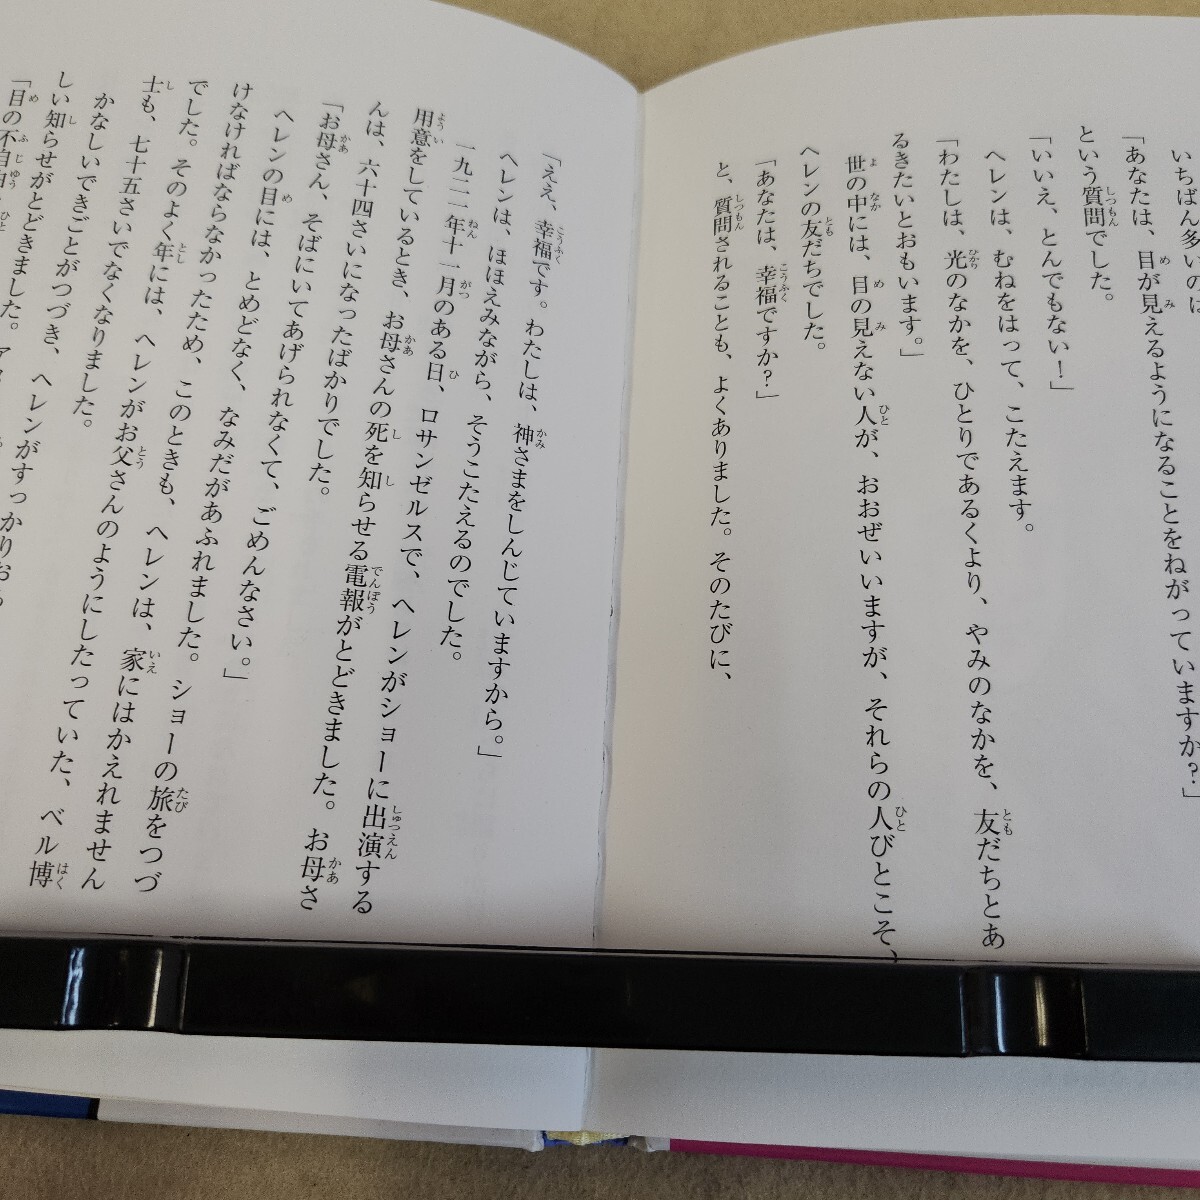 いちばん多いのは
「あなたは、目が見えるようになることをねがっていますか?」
という質問でした。
「いいえ、とんでもない!」
ヘレンは、むねをはって、こたえます。
「わたしは、光のなかを、ひとりであるくより、やみのなかを、友だちとあ
るきたいとおもいます。」
世の中には、目の見えない人が、おおぜいいますが、それらの人びとこそ、
ヘレンの友だちでした。
「あなたは、幸福ですか?」
と、質問されることも、よくありました。そのたびに、
「ええ、幸福です。わたしは、神さまをしんじていますから。」
ヘレンは、ほほえみながら、そうこたえるのでした。
一九二一年十一月のある日、ロサンゼルスで、ヘレンがショーに出演する
用意をしているとき、お母さんの死を知らせる電報がとどきました。お母さ
んは、六十四さいになったばかりでした。
「お母さん、そばにいてあげられなくて、ごめんなさい。」
ヘレンの目には、とめどなく、なみだがあふれました。ショーの旅をつづ
けなければならなかったため、このときも、ヘレンは、家にはかえれません
でした。そのよく年には、ヘレンがお父さんのようにしたっていた、ベル博
士も、七十五さいでなくなりました。
かなしいできごとがつづき、ヘレンがすっかりおち
しい知らせがとどきました。
「目の不自由